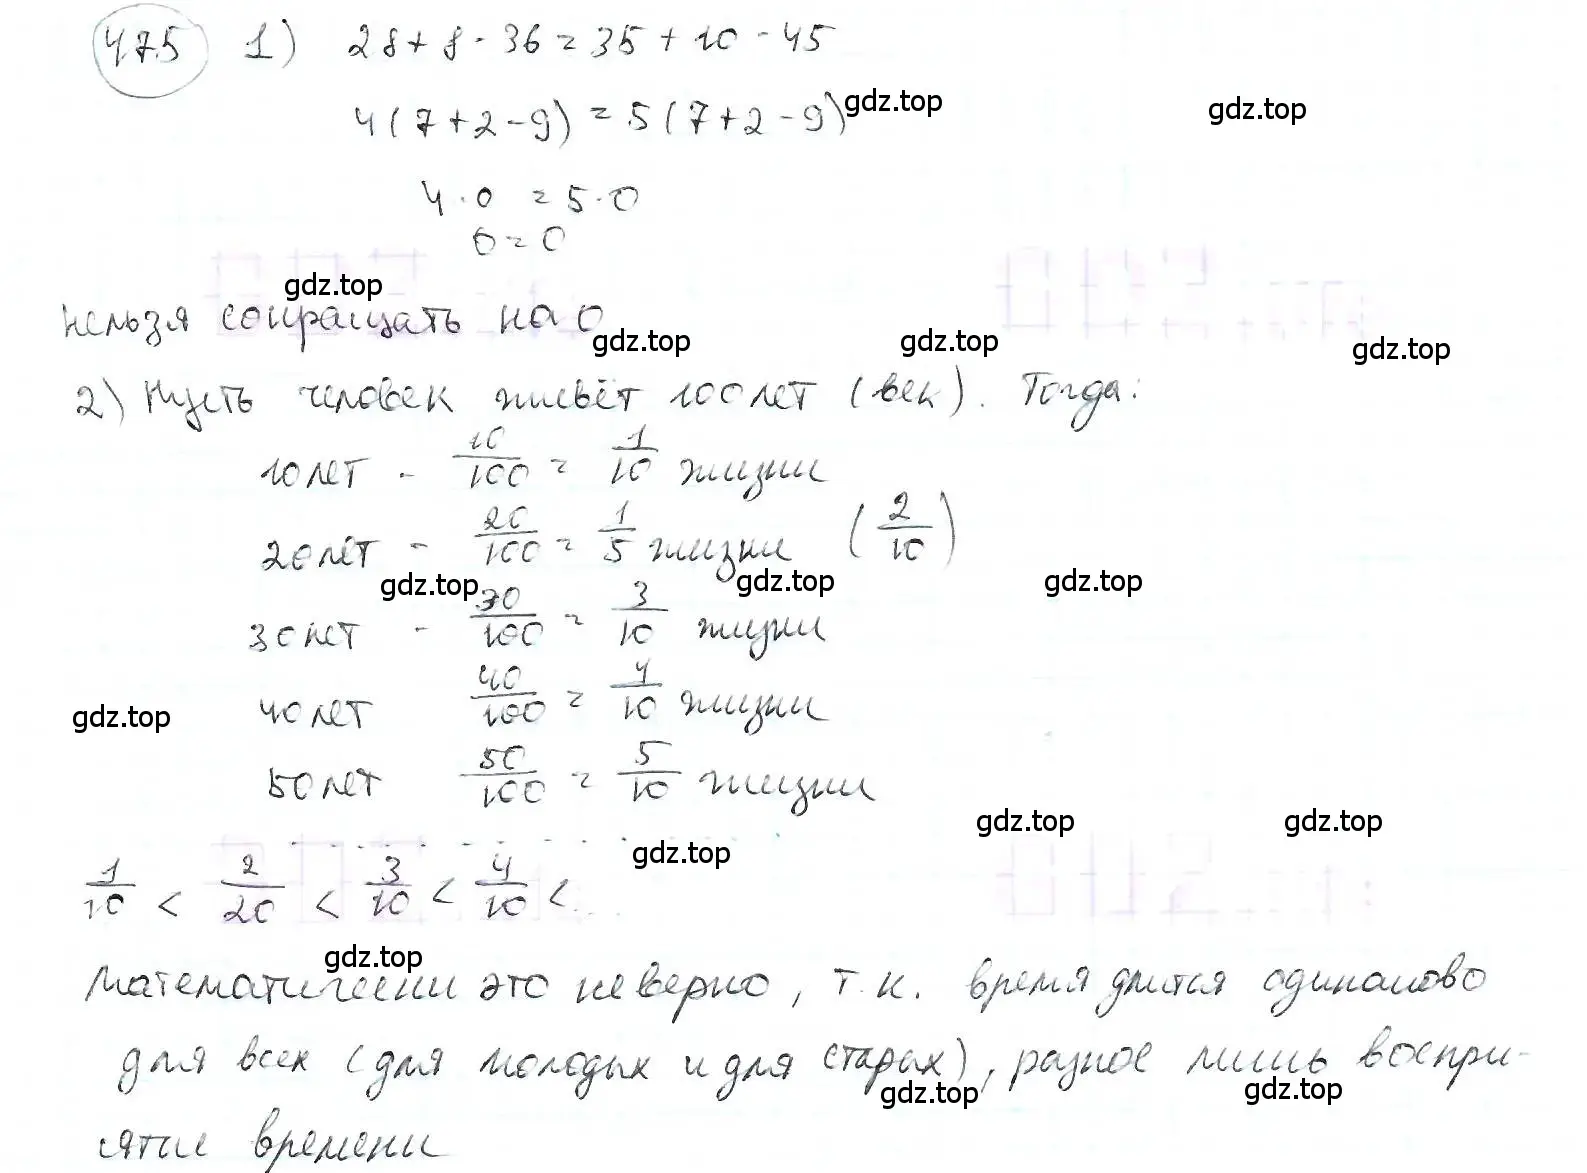 475 1) 28 + 8 - 36 = 35 + 10 - 45
4(7+2-9) = 5(7+2-9)
gdz.top gdz.top
4·0 = 5·0
0=0
gdz.top
нельзя сокращать на 0
gdz.top gdz.top gdz.top
2) Пусть человек живёт 100 лет (век). Тогда:
10 лет - 10/100 = 1/10 жизни
20 лет - 20/100 = 1/5 жизни (2/10)
gdz.top gdz.top gdz.top
30 лет - 30/100 = 3/10 жизни
40 лет 40/100 = 4/10 жизни
gdz.top
50 лет 50/100 = 5/10 жизни
gdz.top gdz.top
gdz.top
1/10 < 2/20 < 3/10 < 4/10 < ...
gdz.top
математически это неверно, т.к. время длится одинаково
для всех (для молодых и для старых), разное лишь воспри-
gdz.top gdz.top
ятие времени